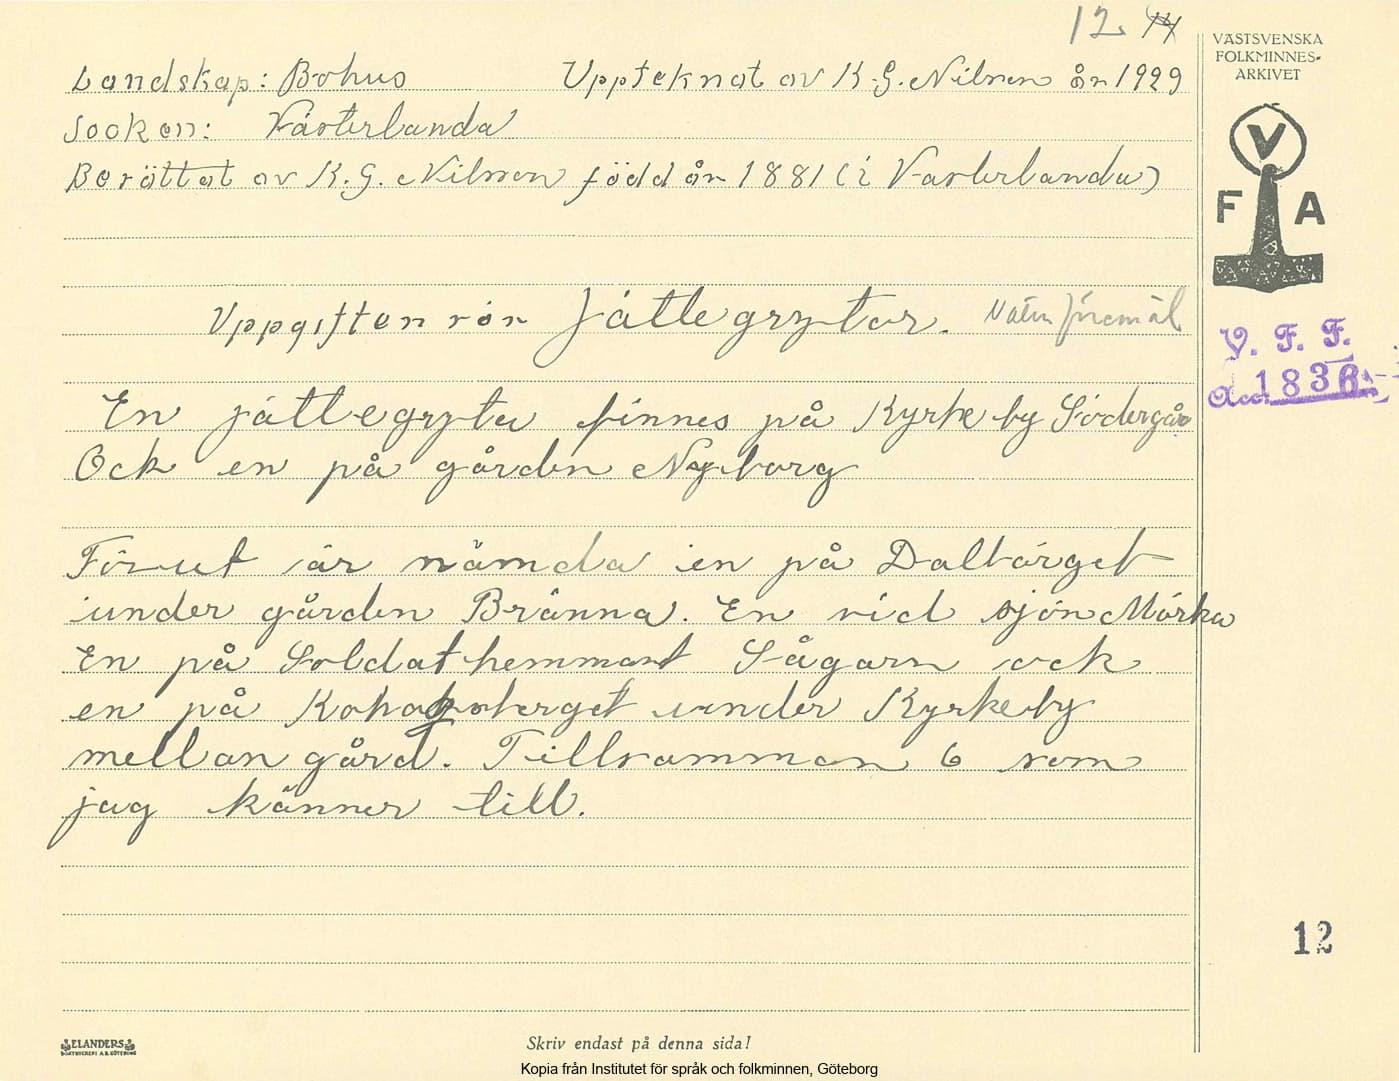 12. 14
VÄSTSVENSKA
FOLKMINNES-
ARKIVET
Landskap: Bohus Uppteknat av K.G. Nilsson år 1929
Socken: Västerlanda
Berättat av K.G. Nilsson född år 1881 (i Västerlanda)
V
F A
Uppgiften rör Jättegrytor. Naturföremål
V. F. F.
Acc. 1836
En jättegryta finnes på Kyrkeby Södergår
Ock en på gården Nyborg
Förut är nämda en på Dalbärget
under gården Bränna. En vid sjön Mörka
En på Soldathemmant Sågarn ock
en på berget under Kyrkeby
mellan gård. Tillsamman 6 som
jag känner till.
12
ELANDERS
BOKTRYCKERI A.B. GÖTEBORG
Skriv endast på denna sida!
Kopia från Institutet för språk och folkminnen, Göteborg